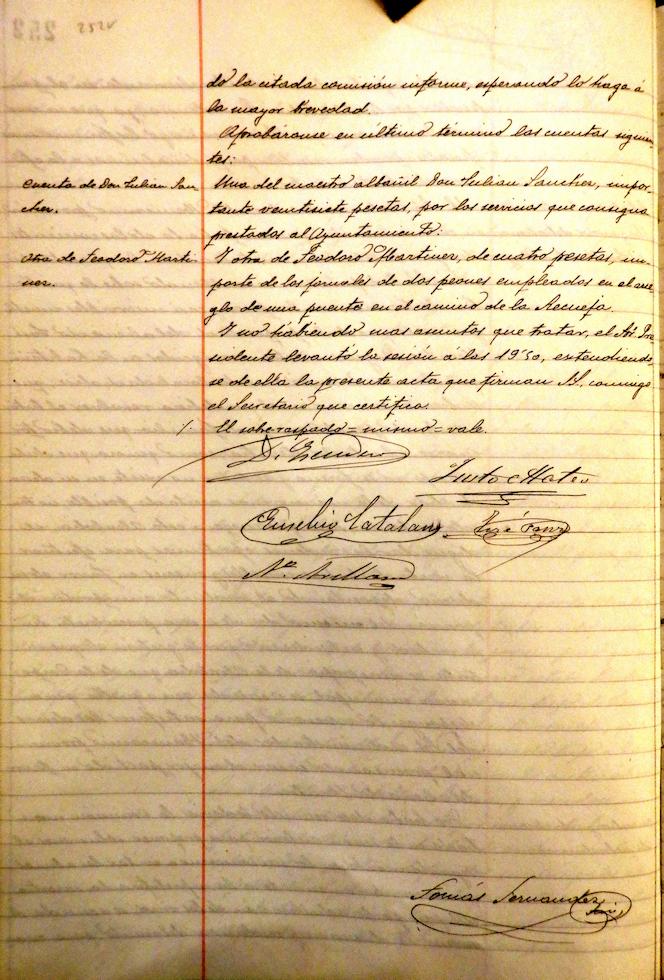 252v
do la citada comisión informe, esperando lo haga á
la mayor brevedad.
Aprobáronse en último término las cuentas siguien
tes:
Cuenta de Don Julian San
chez.
Una del maestro albañil Don Julian Sanchez, impor
tante veintisiete pesetas, por los servicios que consigna
prestados al Ayuntamiento.
Otra de Teodoro Marti
nez.
Y otra de Teodoro Martinez, de cuatro pesetas, im
porte de los jornales de dos peones empleados en el arre
glo de una puente en el camino de la Recueja.
Y no habiendo mas asuntos que tratar, el Sr. Pre
sidente levantó la sesión á las 19'50, extendiendo
se de ella la presente acta que firman SS. conmigo
el Secretario que certifico.
El sobrerraspado = mismo = vale.
Justo Mateo
Eusebio Catalan
José Sanz
Tomás Fernandez